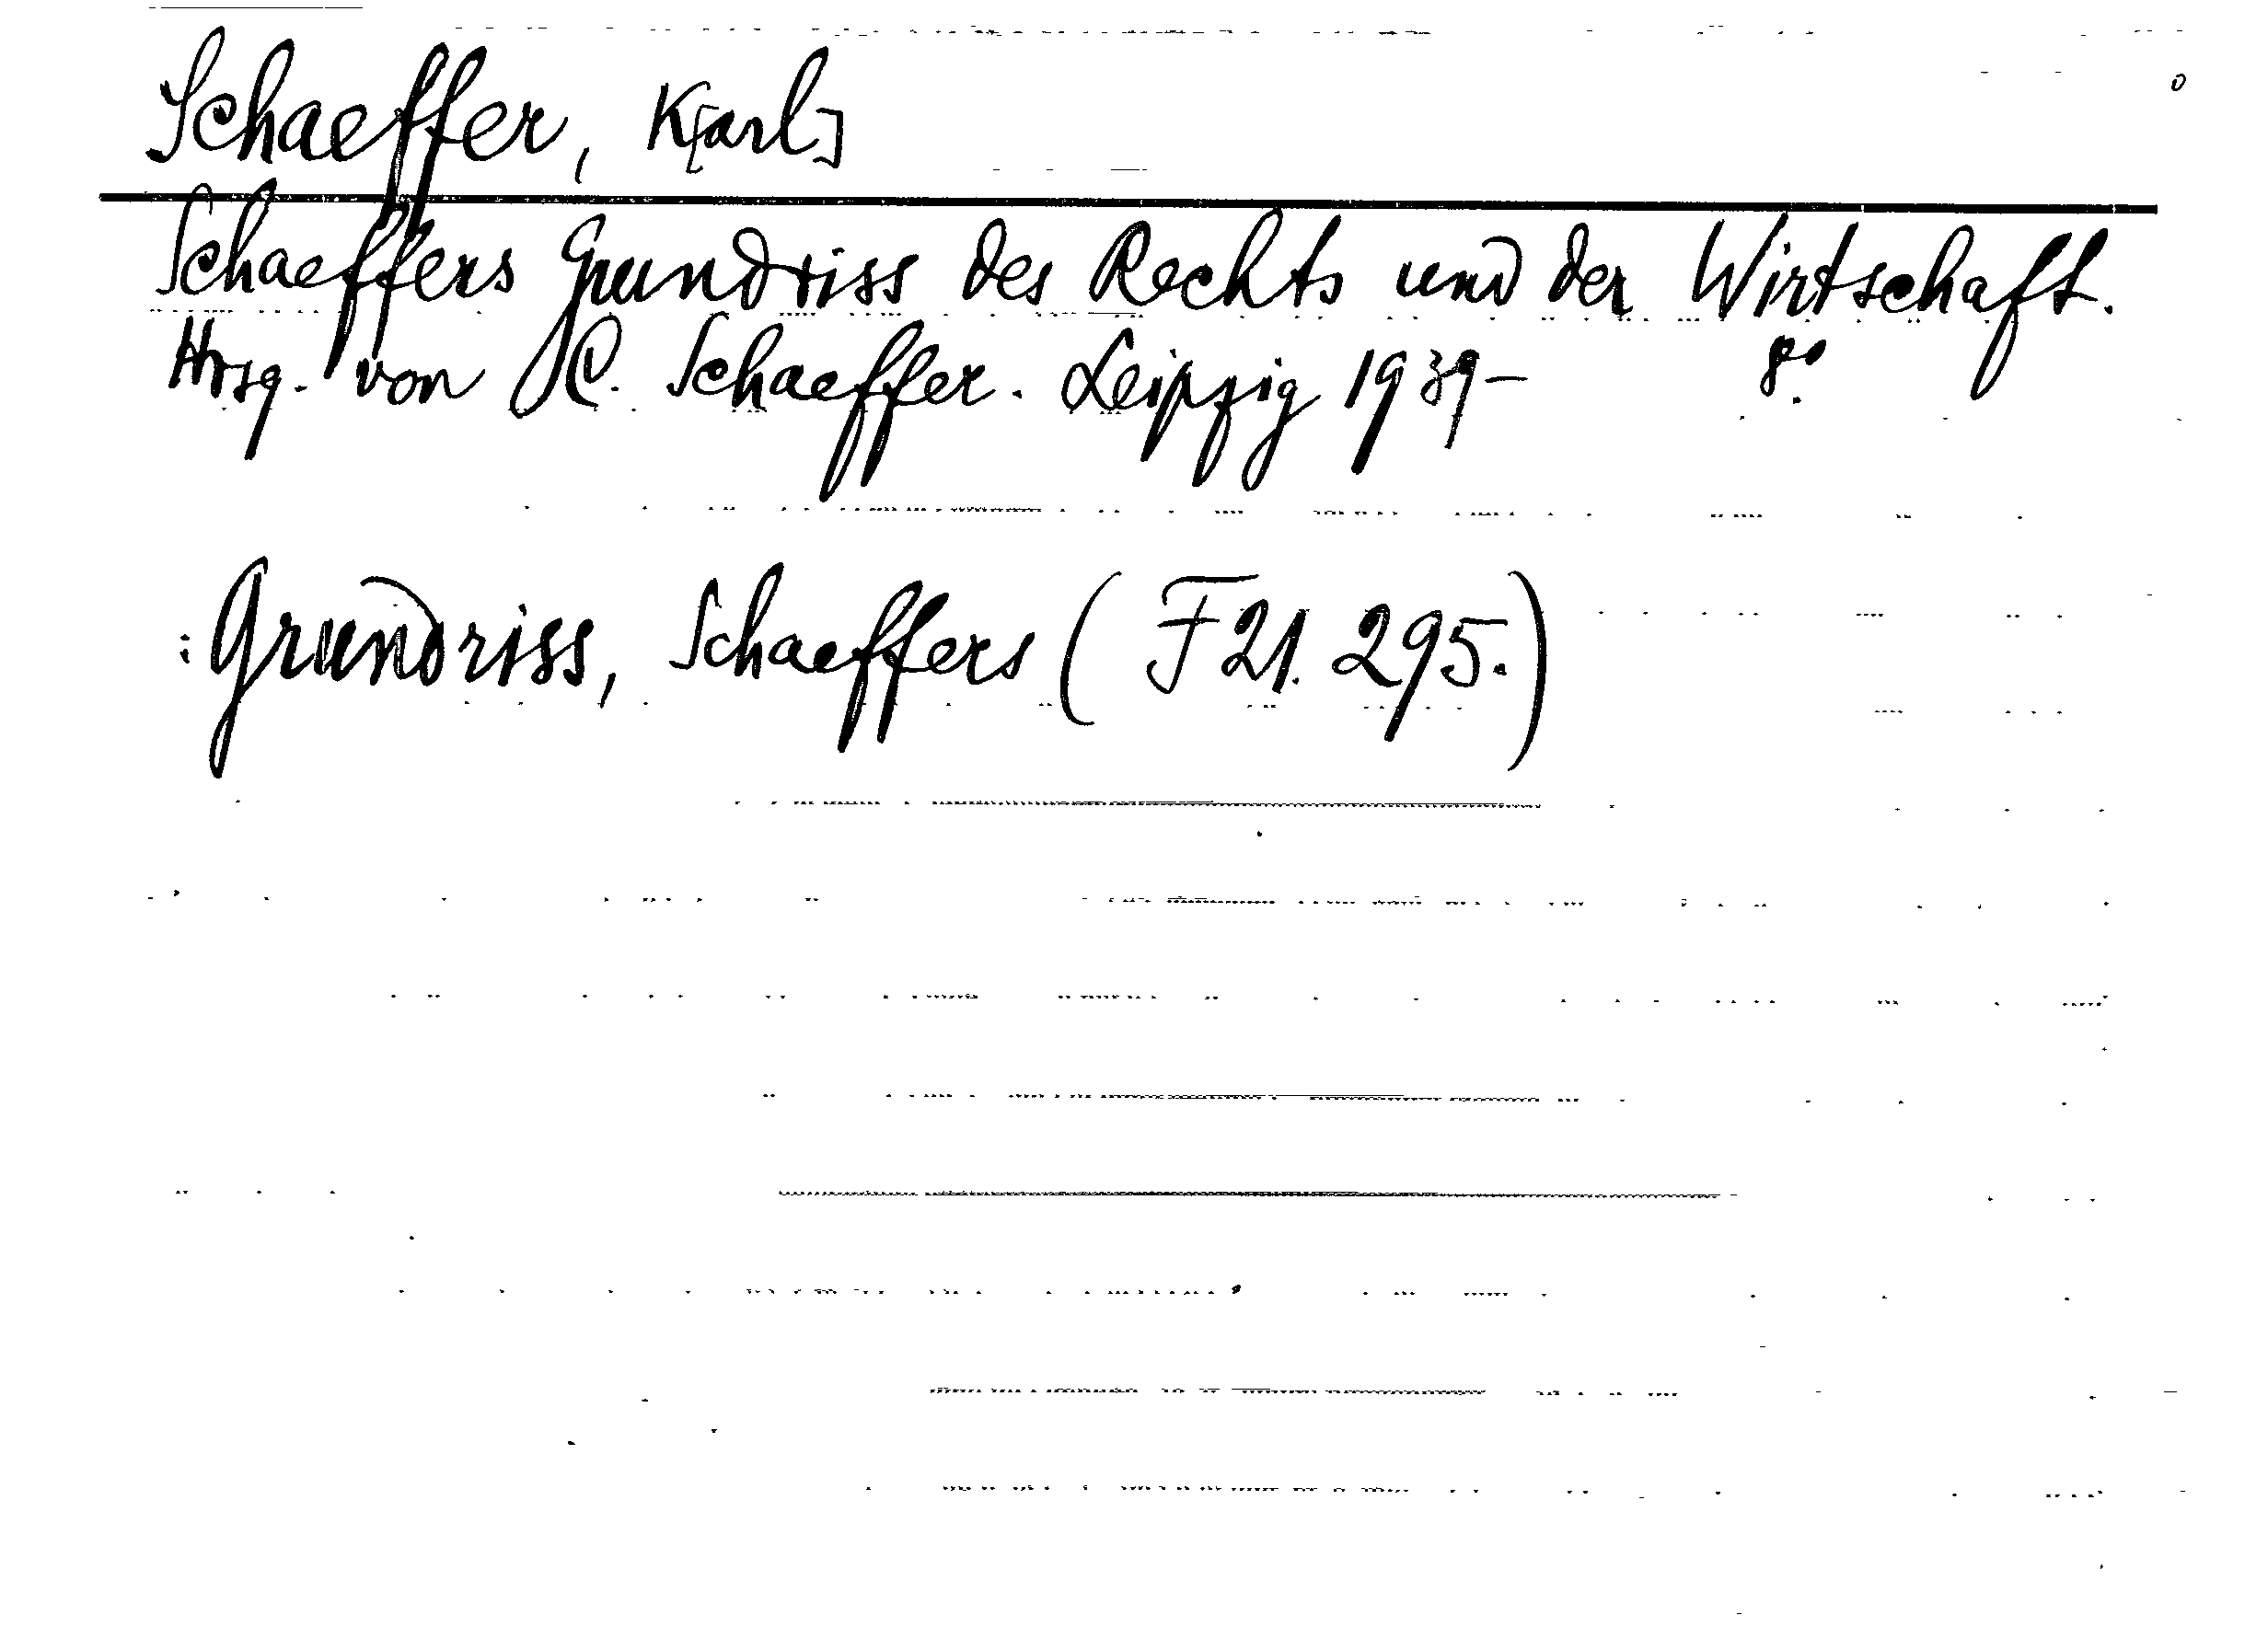 Schaeffer, K[arl]
Schaeffers Grundriss des Rechts und der Wirtschaft.
Hrsg. von C. Schaeffer. Leipzig 1939– 8°.
: Grundriss, Schaeffers (F 21. 295.)